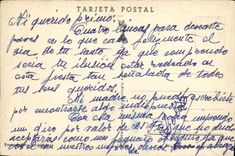 TARJETA POSTAL
Mi querido primo:
Cuatro líneas para desearte
pases a lo que cabe felizmente el
día de tu santo, ya que comprendo
sería tu ilusión estar rodeado en
esta fiesta tan señalada de todos
tus seres queridos.
Mi madre no puede escribirte
por encontrarse algo indispuesta.
Con esta misma fecha impongo
un giro por valor de
aceptarás como un pequeño obsequio ya que
con nuestros mejores deseos